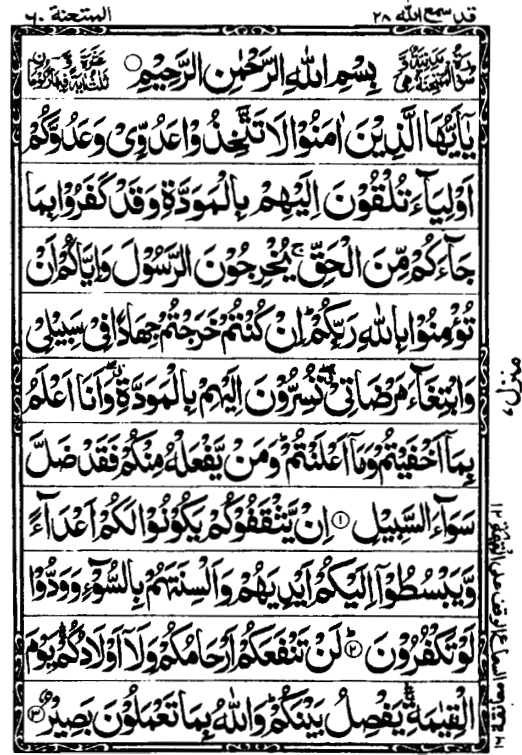 قد سمع الله ٢٨
الممتحنة ٦٠
بِسْمِ اللهِ الرَّحْمٰنِ الرَّحِيْمِ
يٰٓاَيُّهَا الَّذِيْنَ اٰمَنُوْا لَا تَتَّخِذُوْا عَدُوِّىْ وَعَدُوَّكُمْ
اَوْلِيَآءَ تُلْقُوْنَ اِلَيْهِمْ بِالْمَوَدَّةِ وَقَدْ كَفَرُوْا بِمَا
جَآءَكُمْ مِّنَ الْحَقِّ ۚ يُخْرِجُوْنَ الرَّسُوْلَ وَاِيَّاكُمْ اَنْ
تُؤْمِنُوْا بِاللهِ رَبِّكُمْ ؕ اِنْ كُنْتُمْ خَرَجْتُمْ جِهَادًا فِىْ سَبِيْلِىْ
وَابْتِغَآءَ مَرْضَاتِىْ تُسِرُّوْنَ اِلَيْهِمْ بِالْمَوَدَّةِ وَاَنَا اَعْلَمُ
بِمَآ اَخْفَيْتُمْ وَمَآ اَعْلَنْتُمْ ؕ وَمَنْ يَّفْعَلْهُ مِنْكُمْ فَقَدْ ضَلَّ
سَوَآءَ السَّبِيْلِ ۝١ اِنْ يَّثْقَفُوْكُمْ يَكُوْنُوْا لَكُمْ اَعْدَآءً
وَّيَبْسُطُوْٓا اِلَيْكُمْ اَيْدِيَهُمْ وَاَلْسِنَتَهُمْ بِالسُّوْٓءِ وَوَدُّوْا
لَوْ تَكْفُرُوْنَ ۝٢ لَنْ تَنْفَعَكُمْ اَرْحَامُكُمْ وَلَآ اَوْلَادُكُمْ ۛ يَوْمَ
الْقِيٰمَةِ ۛ يَفْصِلُ بَيْنَكُمْ ؕ وَاللهُ بِمَا تَعْمَلُوْنَ بَصِيْرٌ ۝٣
منزل ٧